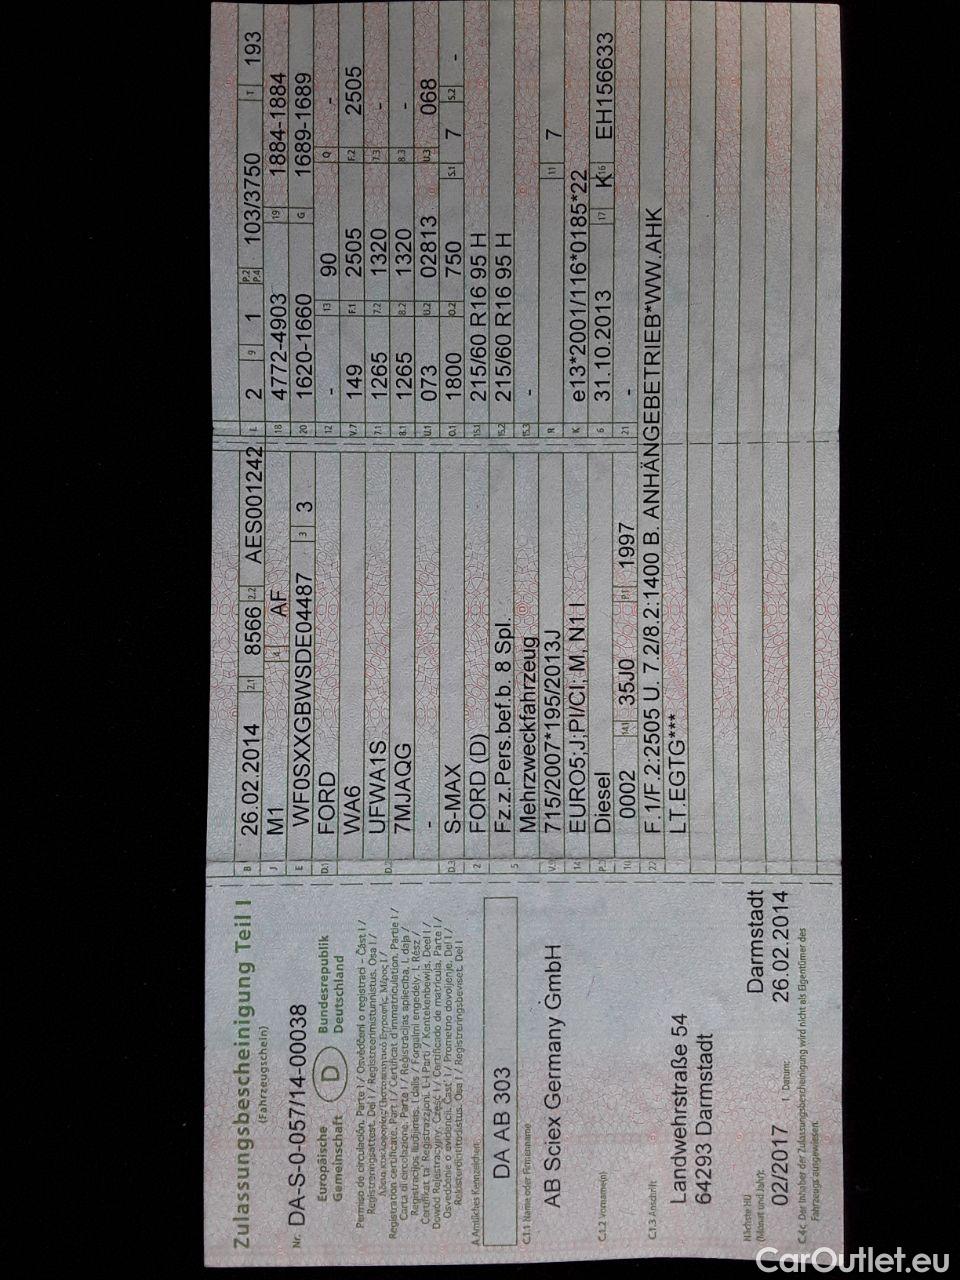 Zulassungsbescheinigung Teil I
(Fahrzeugschein)
Nr. DA-S-0-057/14-00038
Europäische Gemeinschaft D Bundesrepublik Deutschland
Permiso de circulación. Parte I / Osvědčení o registraci - Část I /
Registreringsattest. Del I / Registreerimistunnistus. Osa I /
Άδεια κυκλοφορίας/Πιστοποιητικό Εγγραφής. Μέρος I /
Registration certificate. Part I / Certificat d'immatriculation. Partie I /
Carta di circolazione. Parte I / Reģistrācijas apliecība. I. daļa /
Registracijos liudijimas. I dalis / Forgalmi engedély. I. Rész /
Ċertifikat ta' Reġistrazzjoni. L-I Parti / Kentekenbewijs. Deel I /
Dowód Rejestracyjny. Część I / Certificado de matrícula. Parte I /
Osvedčenie o evidencii. Časť I / Prometno dovoljenje. Del I /
Rekisteröintitodistus. Osa I / Registreringsbeviset. Del I
A Amtliches Kennzeichen
DA AB 303
C.1.1 Name oder Firmenname
AB Sciex Germany GmbH
C.1.2 Vorname(n)
C.1.3 Anschrift
Landwehrstraße 54
64293 Darmstadt
Darmstadt
Nächste HU
(Monat und Jahr):
02/2017
I. Datum:
26.02.2014
C.4c Der Inhaber der Zulassungsbescheinigung wird nicht als Eigentümer des
Fahrzeugs ausgewiesen.
B 26.02.2014 2.1 8566 2.2 AES001242
J M1 4 AF
E WF0SXXGBWSDE04487 3 3
D.1 FORD
WA6
D.2 UFWA1S
7MJAQG
-
D.3 S-MAX
2 FORD (D)
5 Fz.z.Pers.bef.b. 8 Spl.
Mehrzweckfahrzeug
V.9 715/2007*195/2013J
14 EURO5;J;PI/CI; M, N1 I
P.3 Diesel
10 0002 14.1 35J0 P.1 1997
L 2 9 1 P.2 P.4 103/3750 T 193
18 4772-4903 19 1884-1884
20 1620-1660 G 1689-1689
12 - 13 90 Q -
V.7 149 F.1 2505 F.2 2505
7.1 1265 7.2 1320 7.3 -
8.1 1265 8.2 1320 8.3 -
U.1 073 U.2 02813 U.3 068
O.1 1800 O.2 750 S.1 7 S.2 -
15.1 215/60 R16 95 H
15.2 215/60 R16 95 H
15.3 -
R 11 7
K e13*2001/116*0185*22
6 31.10.2013 17 K 16 EH156633
21 -
22 F.1/F.2:2505 U. 7.2/8.2:1400 B. ANHÄNGEBETRIEB*WW.AHK
LT.EGTG***
CarOutlet.eu